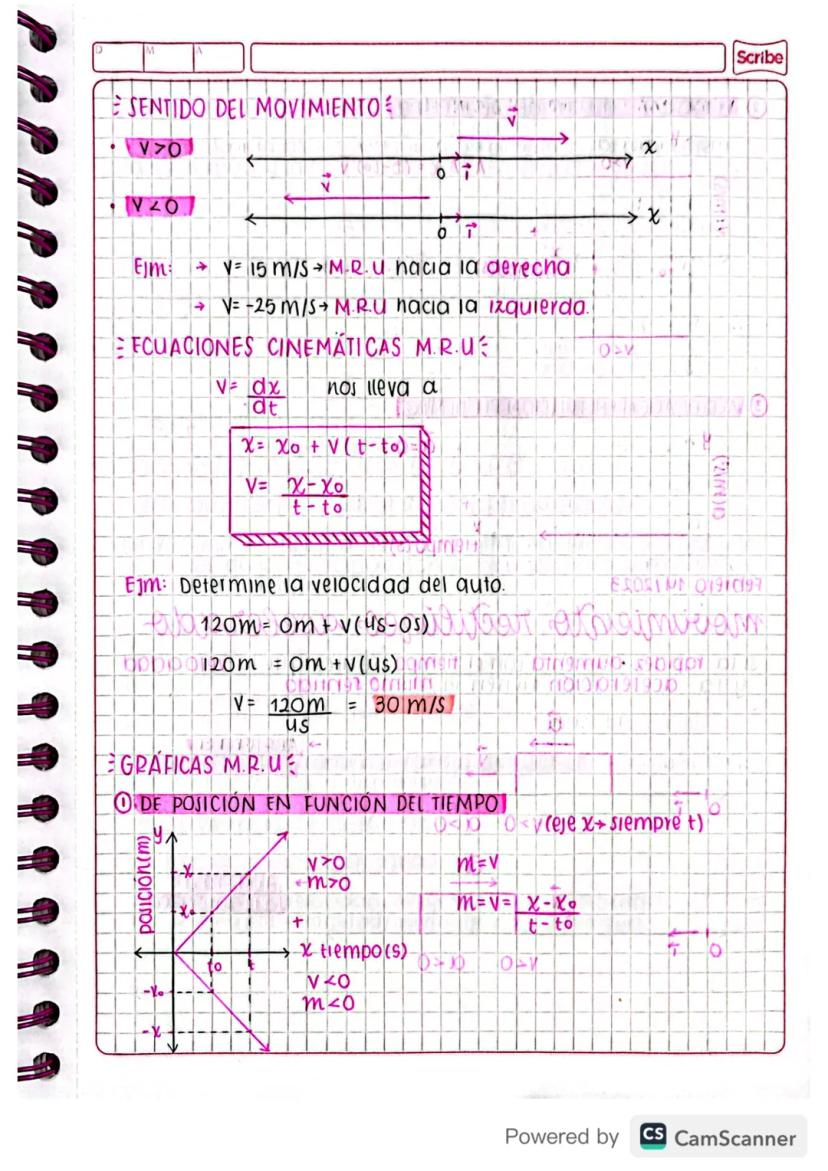 D M A
Scribe
SENTIDO DEL MOVIMIENTO
• V>0
v⃗
x
0 i⃗
• V<0
v⃗
x
0 i⃗
Ejm: → V= 15 m/s → M.R.U hacia la derecha
→ V= -25 m/s → M.R.U hacia la izquierda.
ECUACIONES CINEMÁTICAS M.R.U
V= dx/dt nos lleva a
x= x0 + v(t-t0)
V= x-x0/t-t0
Ejm: Determine la velocidad del auto.
120m= 0m + v(4s-0s)
120m = 0m + v(4s)
V= 120m/4s = 30 m/s
GRÁFICAS M.R.U
① DE POSICIÓN EN FUNCIÓN DEL TIEMPO
(eje x→ siempre t)
posición(m)
y
x
x0
t0 t
x tiempo(s)
-x0
-x
V>0
m>0
+
V<0
m<0
m=V
m=V= x-x0/t-t0
Powered by CS CamScanner